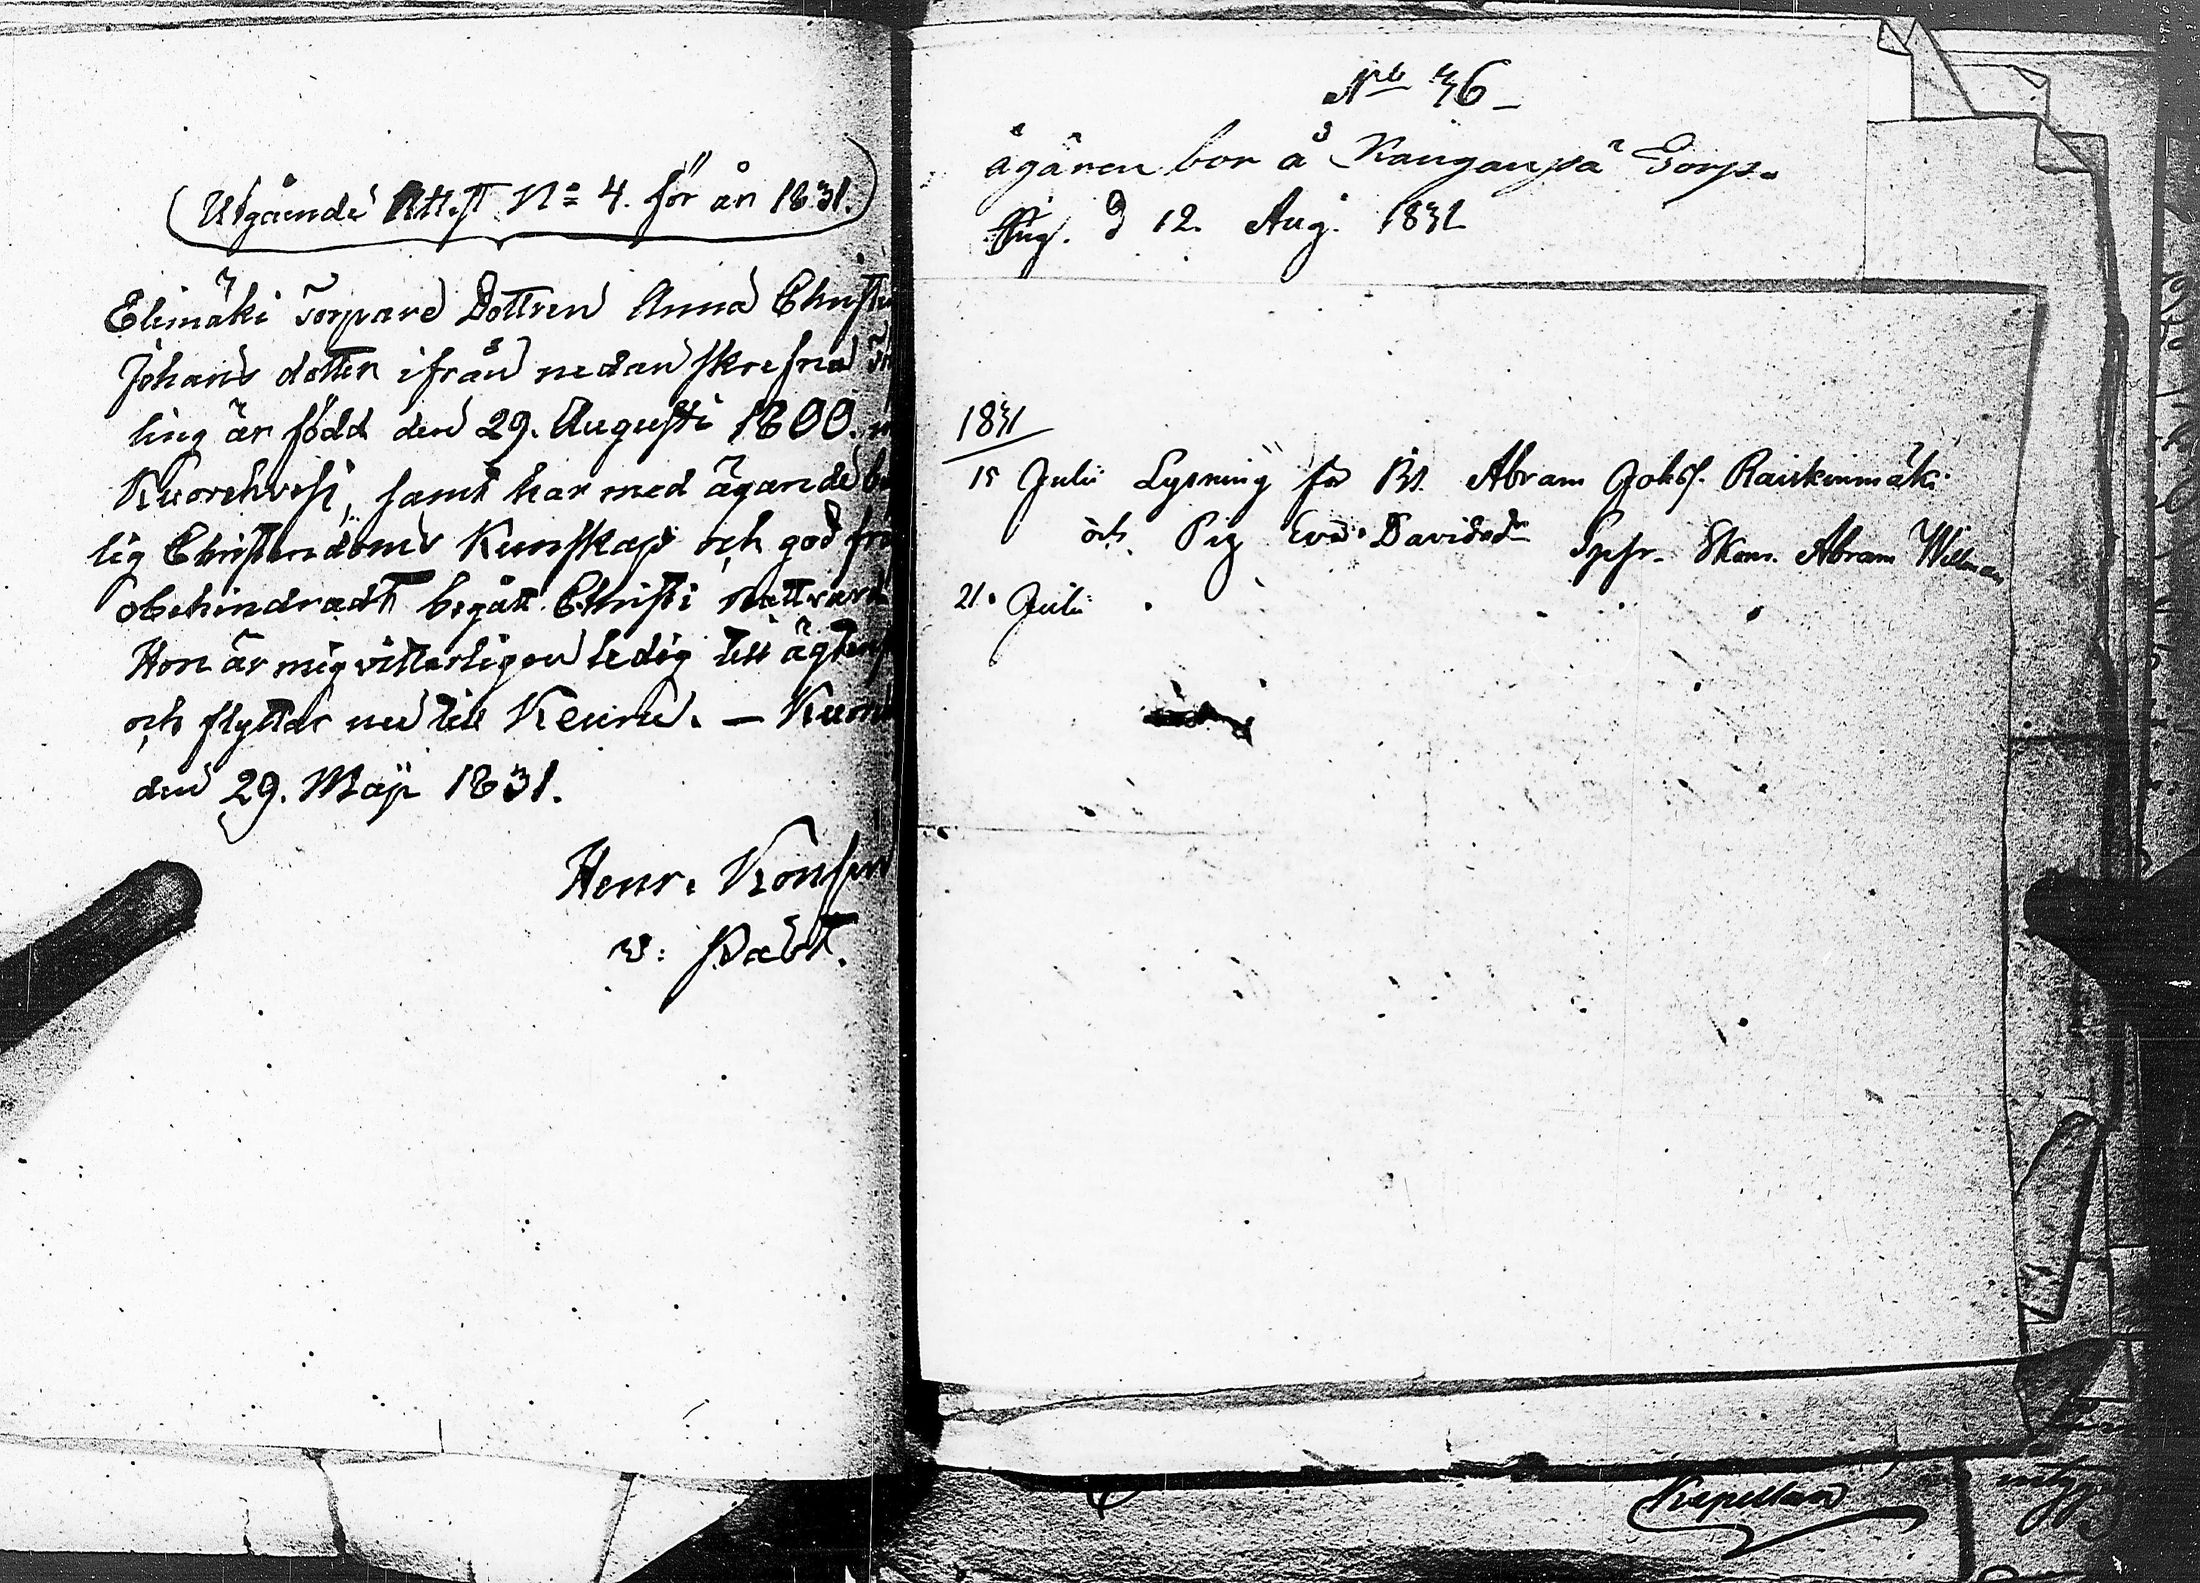 (Utgående Attest No 4. för år 1831.)
Elimäki Torpare Dottren Anna Christin
Johans dotter ifrån nedanskrefna
ling är född den 29. Augusti 1800.
Kuorehvesi, samt har med ägande
lig Christendoms Kunskap och god
obehindradt begått Christi nattvard
Hon är mig vitterligen ledig till ägtensk
och flyttar nu till Keuru. — Kuore
den 29. Maji 1831.
Henr. Konsen
v: Past.
No 36
ägaren bor å Kangaspä Torp.
d 12. Aug. 1831
1831
15 Julii Lysning för Abram Johsf. Raiskinmäki
och Pig Eva Davidsdr Spfr. Skom. Abram Willman
21. Julii
Kapellan